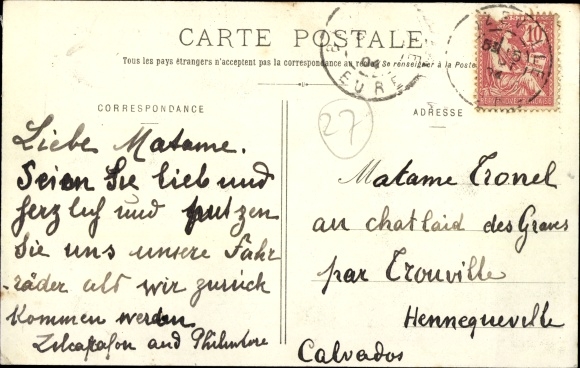 CARTE POSTALE
Tous les pays étrangers n'acceptent pas la correspondance au recto. Se renseigner à la Poste
CORRESPONDANCE
ADRESSE
27
EURE
10
Liebe Matame.
Seien Sie lieb und
herzlich und putzen
Sie uns unsere Fahr
-räder als wir zurück
kommen werden
and
Matame Tronel
au chatlaid des Graves
par Trouville
Hennequeville
Calvados